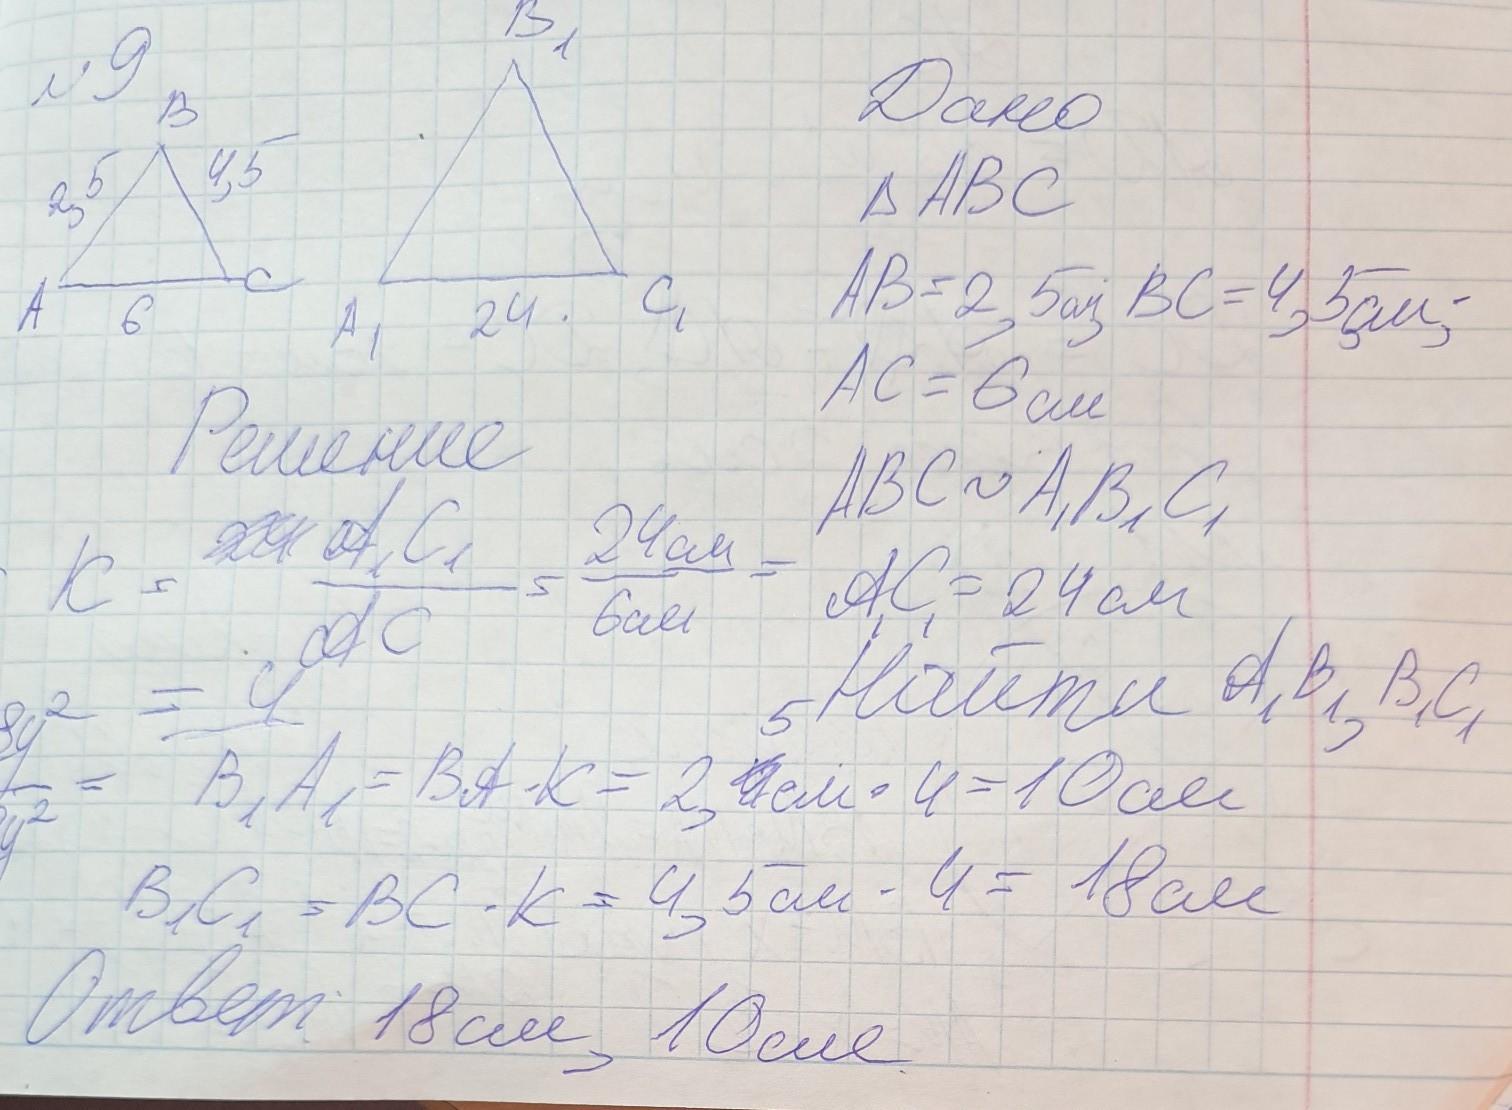 №9
B
B₁
2,5
4,5
A
6
C
A₁
24
C₁
Дано
△ABC
AB=2,5см; BC=4,5см;
AC=6см
ABC∼A₁B₁C₁
A₁C₁=24см
Найти A₁B₁, B₁C₁
Решение
K = A₁C₁/AC = 24см/6см =
= 4
B₁A₁=BA·K=2,5см·4=10см
B₁C₁=BC·K=4,5см·4=18см
Ответ: 18см, 10см